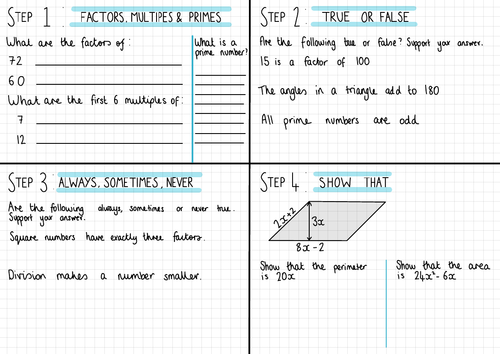 STEP 1: FACTORS, MULTIPES & PRIMES
What are the factors of:
72
60
What are the first 6 multiples of:
7
12
What is a
prime number?
STEP 2: TRUE OR FALSE
Are the following true or false? Support your answer.
15 is a factor of 100
The angles in a triangle add to 180
All prime numbers are odd
STEP 3: ALWAYS, SOMETIMES, NEVER
Are the following always, sometimes or never true.
Support your answer.
Square numbers have exactly three factors.
Division makes a number smaller.
STEP 4: SHOW THAT
2x+2
3x
8x-2
Show that the perimeter
is 20x
Show that the area
is 24x²-6x